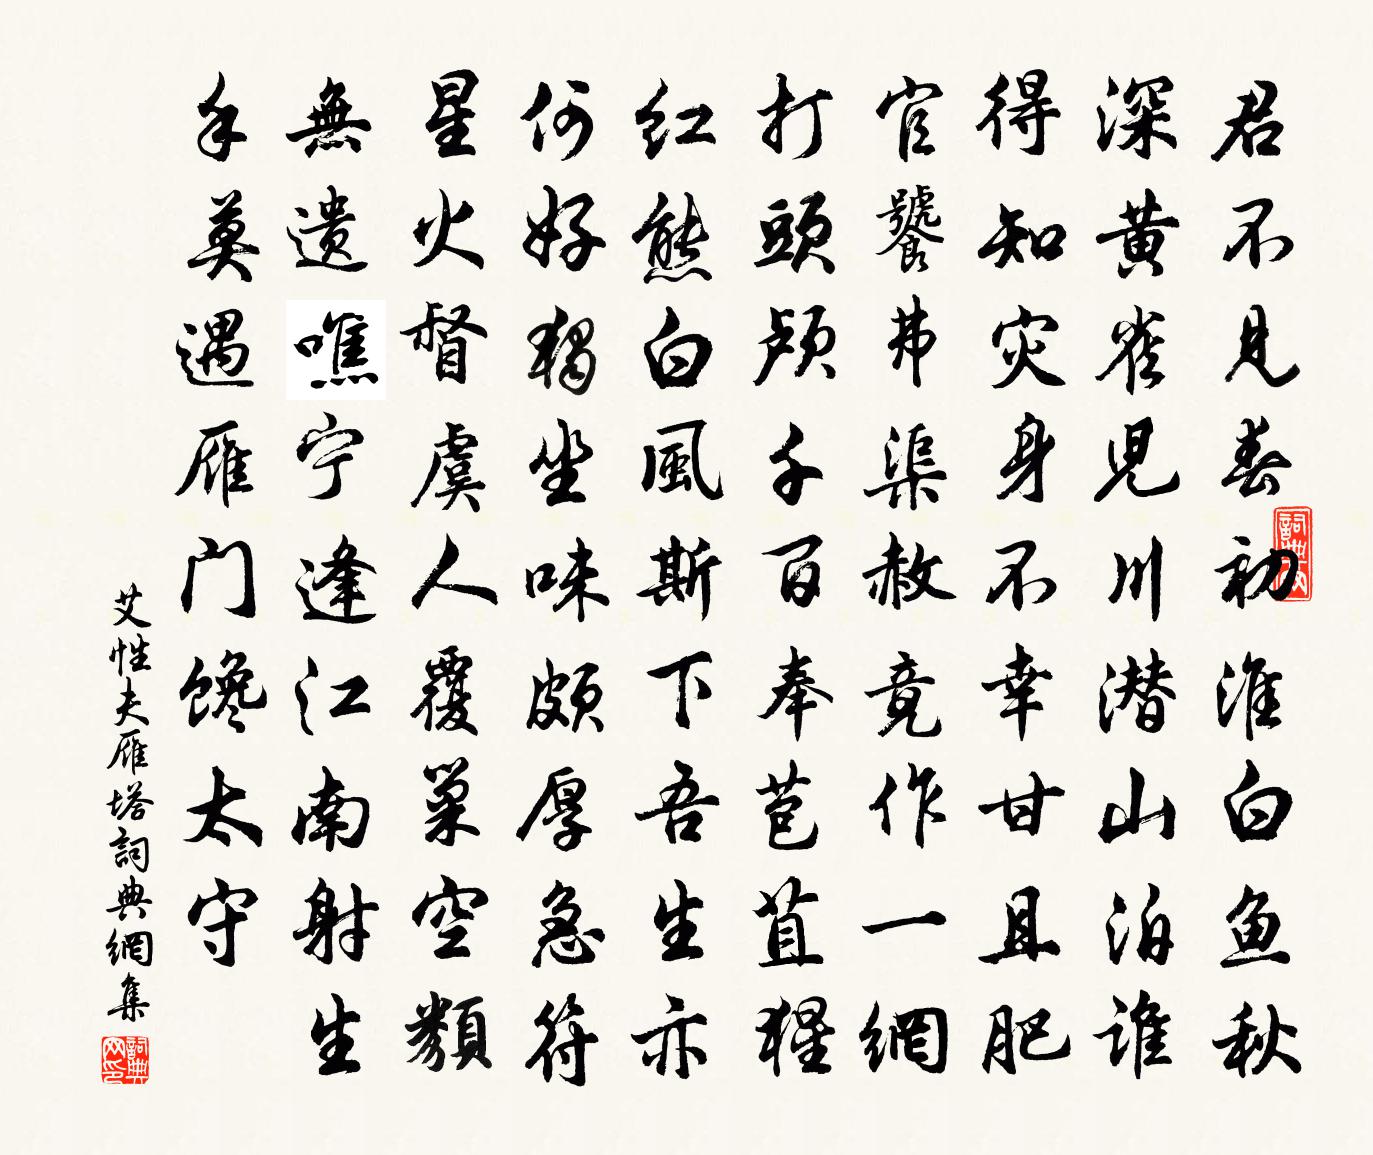 君不見春初淮白鱼秋
深黄雀児川潜山泊誰
得知灾身不幸甘且肥
官饕弗渠赦竟作一網
打頭颅千百奉苞苴猩
红熊白風斯下吾生亦
何好獨坐味頗厚急符
星火督虞人覆巢空類
無遗噍宁逢江南射生
手莫遇雁门馋太守
艾性夫雁塔詞典網集
詞典网
詞典网印